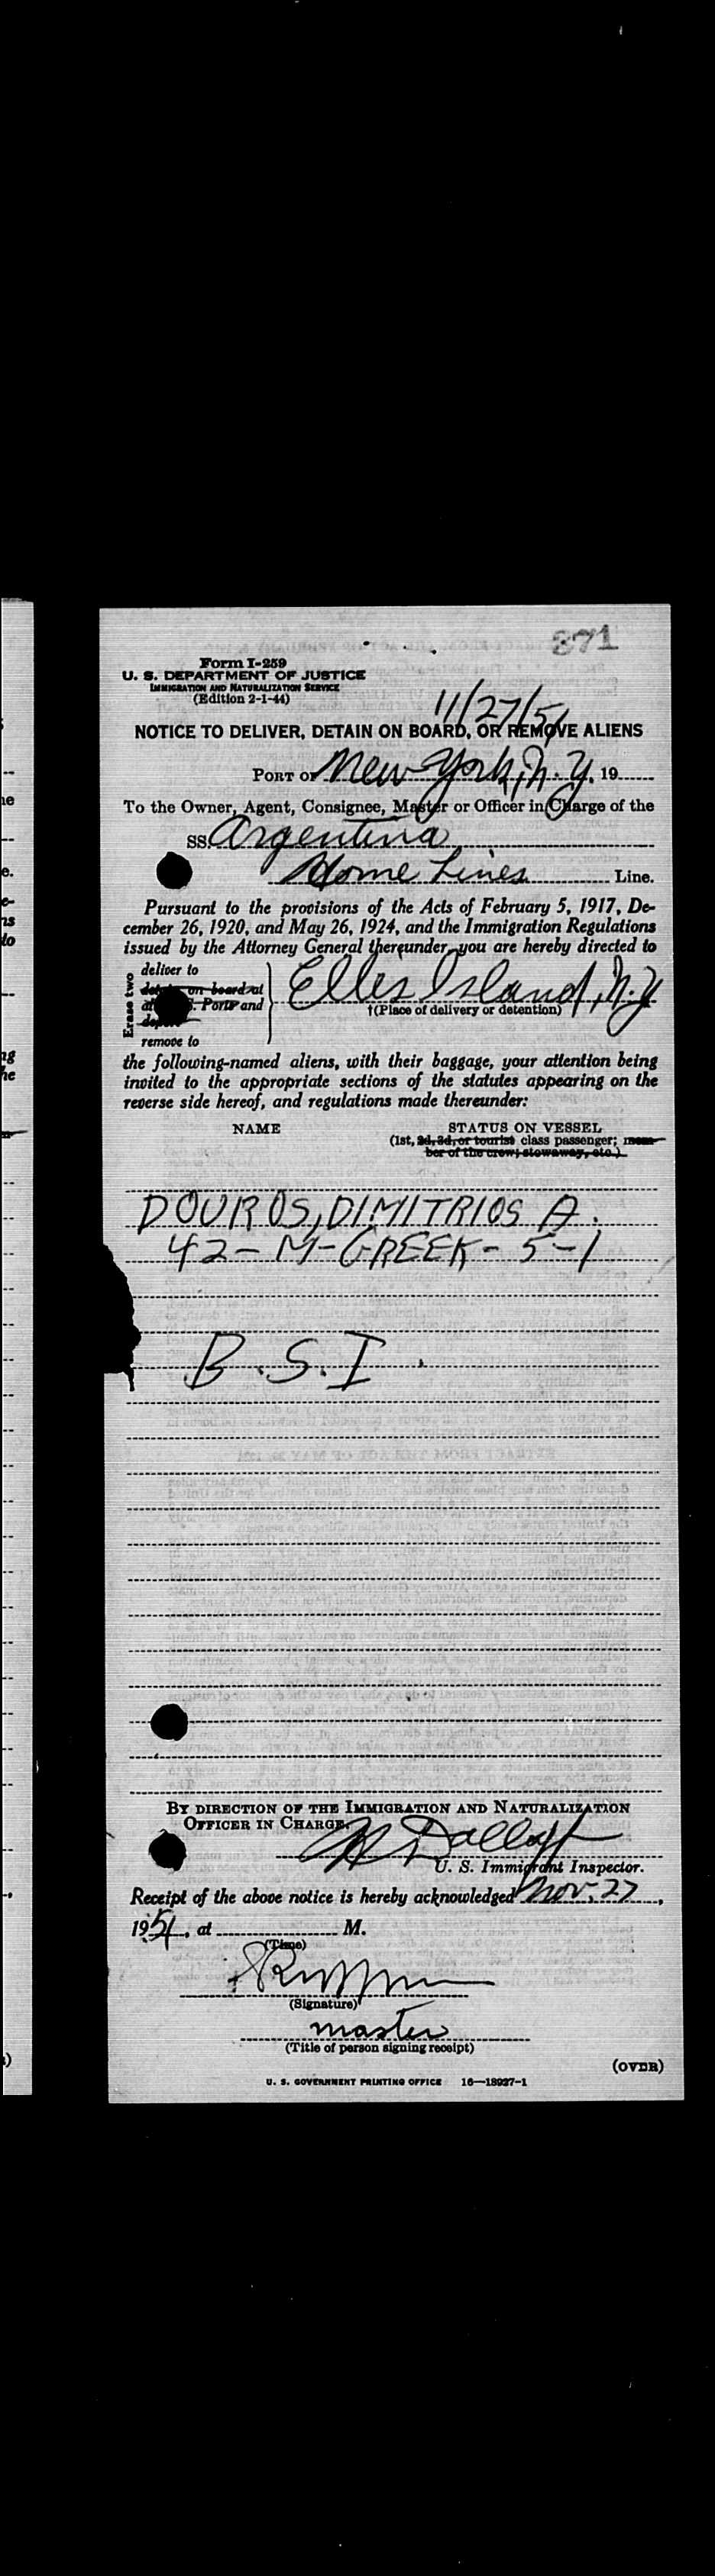 371
Form I-259
U. S. DEPARTMENT OF JUSTICE
IMMIGRATION AND NATURALIZATION SERVICE
(Edition 2-1-44)
11/27/51
NOTICE TO DELIVER, DETAIN ON BOARD, OR REMOVE ALIENS
PORT OF New York, N.Y. 19
To the Owner, Agent, Consignee, Master or Officer in Charge of the
SS. Argentina
Home Lines Line.
Pursuant to the provisions of the Acts of February 5, 1917, De-
cember 26, 1920, and May 26, 1924, and the Immigration Regulations
issued by the Attorney General thereunder, you are hereby directed to
Erase two
deliver to
on board at
Ports and
remove to
Ellis Island, N.Y
†(Place of delivery or detention)
the following-named aliens, with their baggage, your attention being
invited to the appropriate sections of the statutes appearing on the
reverse side hereof, and regulations made thereunder:
NAME
STATUS ON VESSEL
(1st, 2d, 3d, or tourist class passenger; mem-
ber of the crew; stowaway, etc.)
DOUROS, DIMITRIOS A.
42-M-GREEK-5-1
B.S.I.
BY DIRECTION OF THE IMMIGRATION AND NATURALIZATION
OFFICER IN CHARGE.
U. S. Immigrant Inspector.
Receipt of the above notice is hereby acknowledged Nov. 27,
1951, at M.
(Time)
(Signature)
master
(Title of person signing receipt)
(OVER)
U. S. GOVERNMENT PRINTING OFFICE 16—18937-1